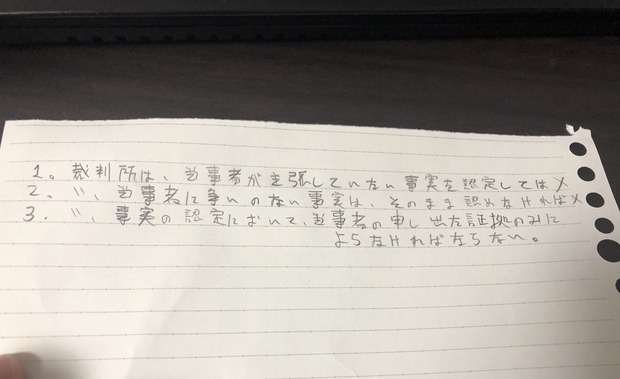 1。裁判所は、当事者が主張していない事実を認定してはX
2。〃、当事者に争いのない事実は、そのまま認めなければX
3。〃、事実の認定において、当事者の申し出た証拠のみに
よらなければならない。